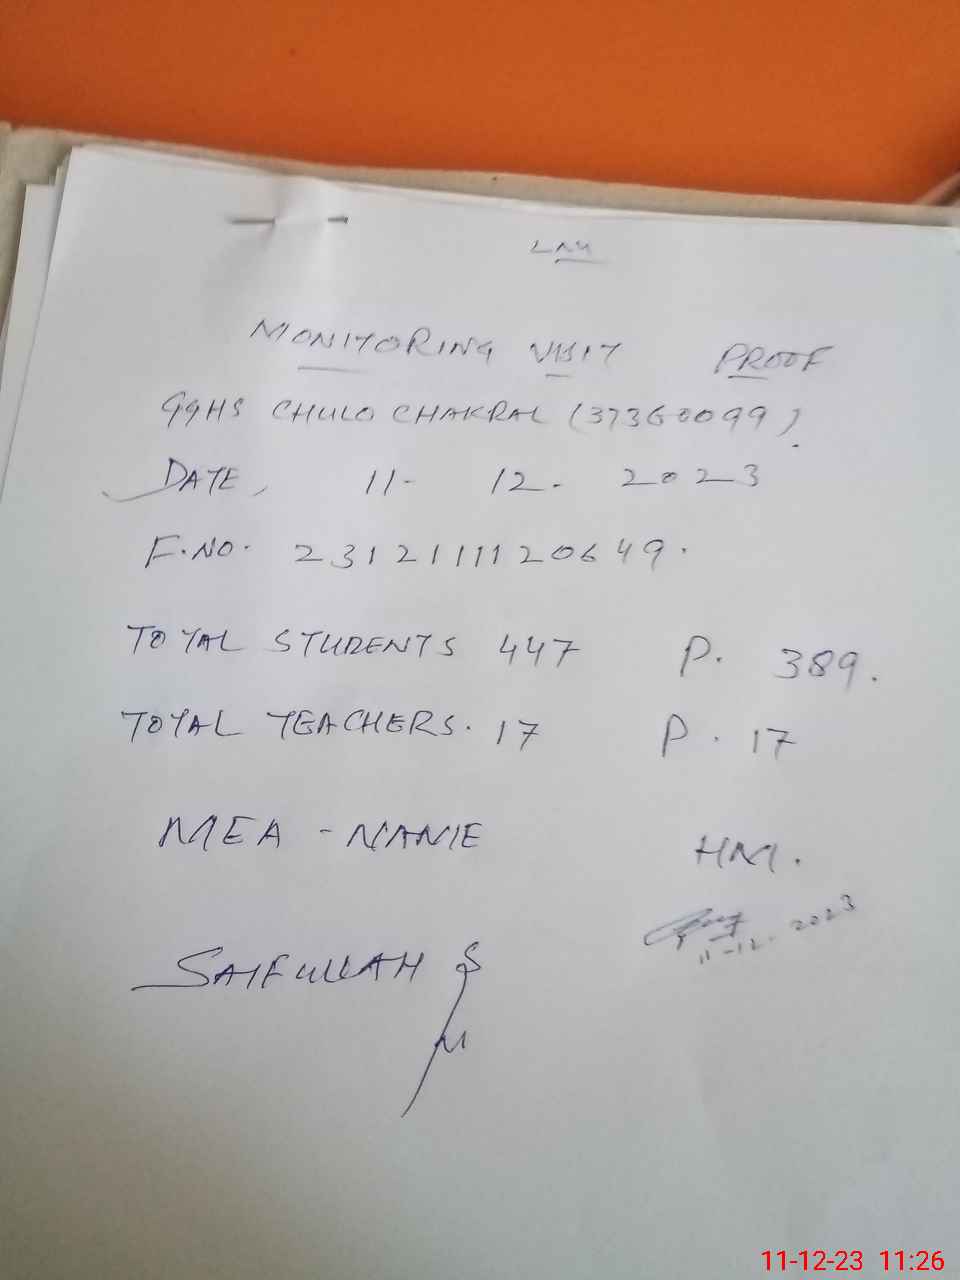 MONITORING VISIT PROOF
GGHS CHULO CHAKRAL (37360099).
DATE, 11- 12. 2023
F.NO. 2312111120649.
TOTAL STUDENTS 447 P. 389.
TOTAL TEACHERS. 17 P. 17
MEA - NAME HM.
11-12. 2023
SAIFULLAH
11-12-23 11:26